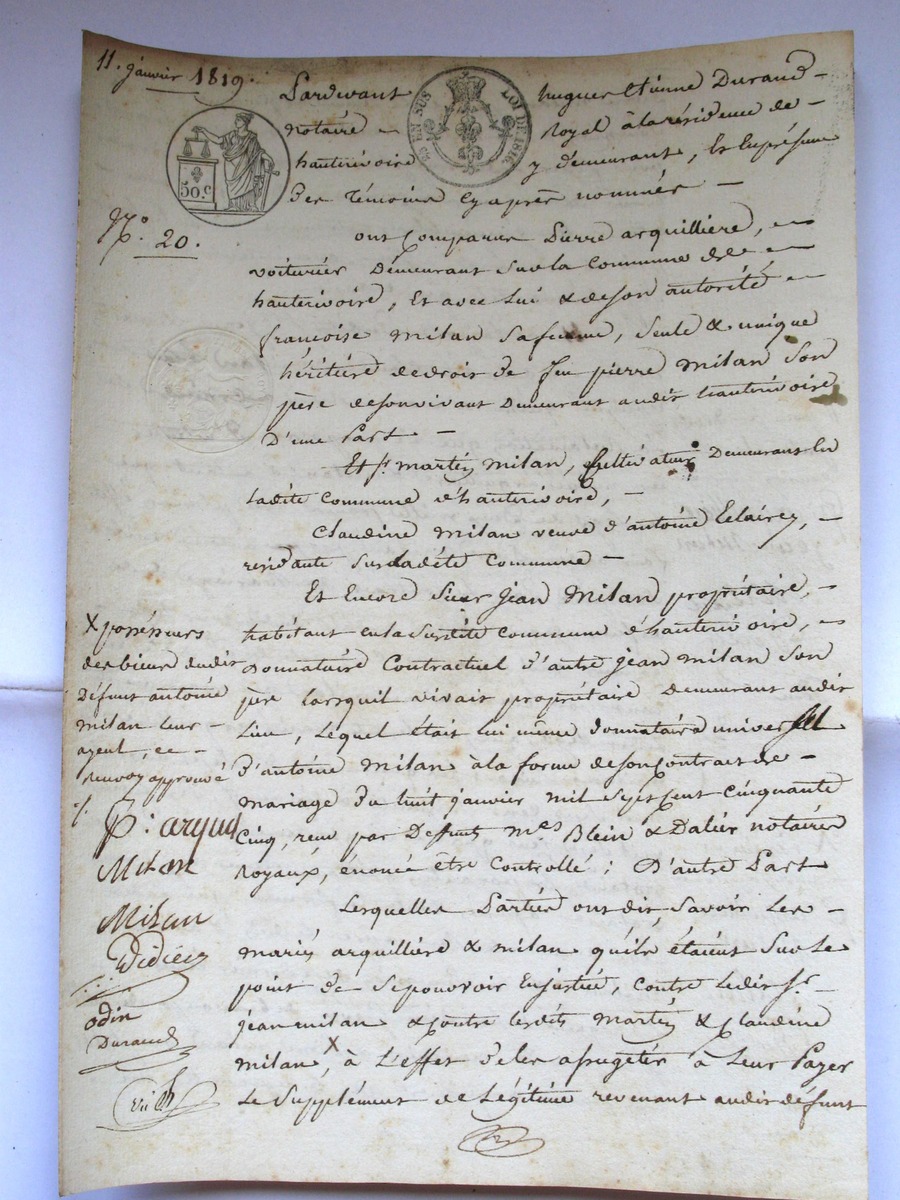 11. janvier 1819.
50.C
25 EN SUS
LOI DE 1816
Pardevant hugues Etienne Durand
notaire royal à la résidence de
hauterivoire y demeurant, et En présence
des témoins cy après nommés
N.º 20.
ont Comparus Pierre arquillière,
voiturier Demeurant sur la Commune de
hauterivoire, Et avec Lui & de son autorité
françoise milan sa femme, seule & unique
héritière de droit de feu pierre milan son
père de son vivant Demeurant audit hauterivoire
D'une Part
Et s.r martin milan, Cultivateur Demeurant En
Ladite Commune d'hauterivoire,
Claudine milan veuve d'antoine
residante sur Ladite Commune
Et Encore Sieur Jean Milan propriétaire,
habitant en la susdite Commune d'hauterivoire,
Donnataire Contractuel d'autre jean milan son
père lorsquil vivait propriétaire Demeurant audit
Lieu, Lequel était lui même donnataire universel
d'antoine milan à la forme de son Contract de
mariage du huit janvier mil sept Cent Cinquante
Cinq, reçu par Deffunts m.es Blein & Dalier notaires
royaux, énoncé être Controllé; D'autre Part
Lesquelles Parties ont dit, savoir Les
mariés arquillière & milan qu'ils étaient sur Le
point de se pourvoir En justice, Contre Ledit s.r
jean milan & Contre Lesdits martin & Claudine
milan X, à L'effet de les assugétir à Leur Payer
Le Supplément de Légitime revenant audit défunt
X possésseurs
des biens dudit
Défunt antoine
milan leur
ayeul, ce
renvoy approuvé
P: arquil
Milan
Milan
odin
Durand